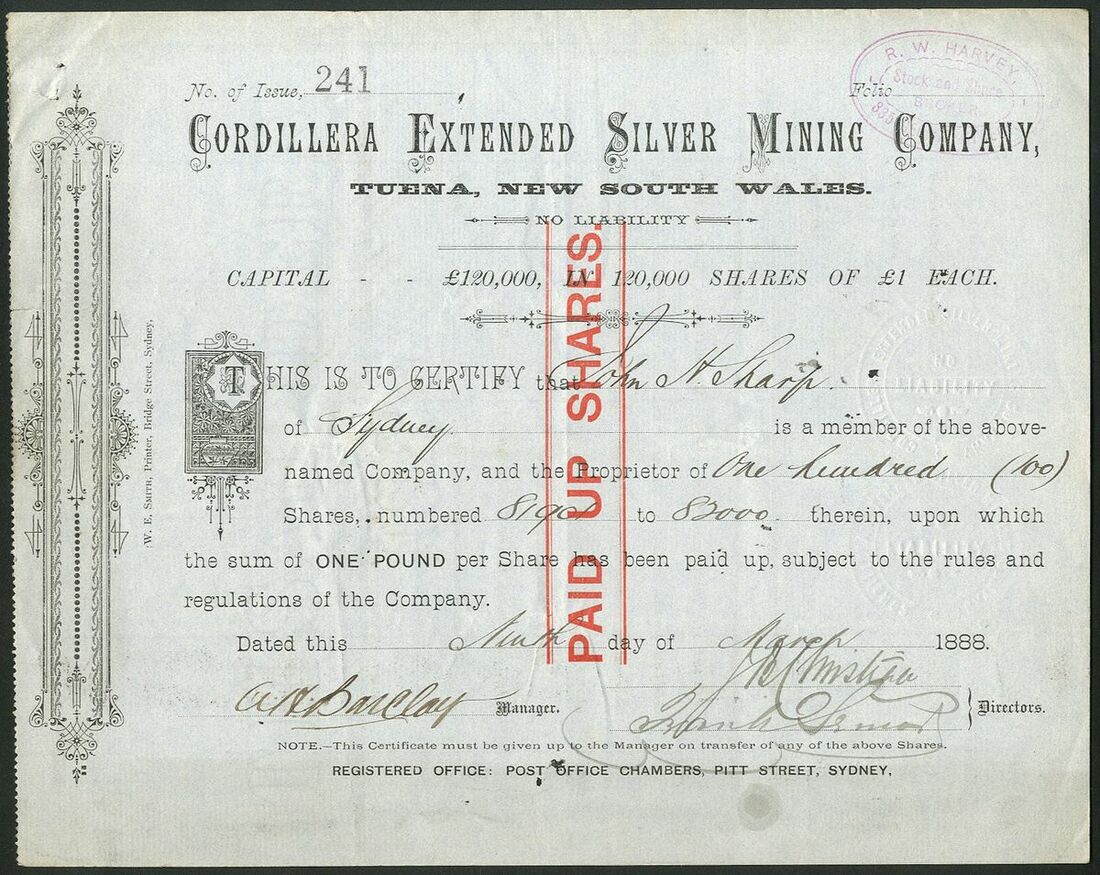 No. of Issue, 241
Folio
R. W. HARVEY
Stock and Share
BROKER
CORDILLERA EXTENDED SILVER MINING COMPANY,
TUENA, NEW SOUTH WALES.
NO LIABILITY
CAPITAL - - £120,000, IN 120,000 SHARES OF £1 EACH.
PAID UP SHARES.
THIS IS TO CERTIFY that John H. Sharp.
of Sydney is a member of the above-
named Company, and the Proprietor of One hundred (100)
Shares, numbered 81901 to 82000 therein, upon which
the sum of ONE POUND per Share has been paid up, subject to the rules and
regulations of the Company.
Dated this Ninth day of March 1888.
A. H. Barclay Manager.
Directors.
NOTE.—This Certificate must be given up to the Manager on transfer of any of the above Shares.
REGISTERED OFFICE: POST OFFICE CHAMBERS, PITT STREET, SYDNEY,
W. E. SMITH, Printer, Bridge Street, Sydney,